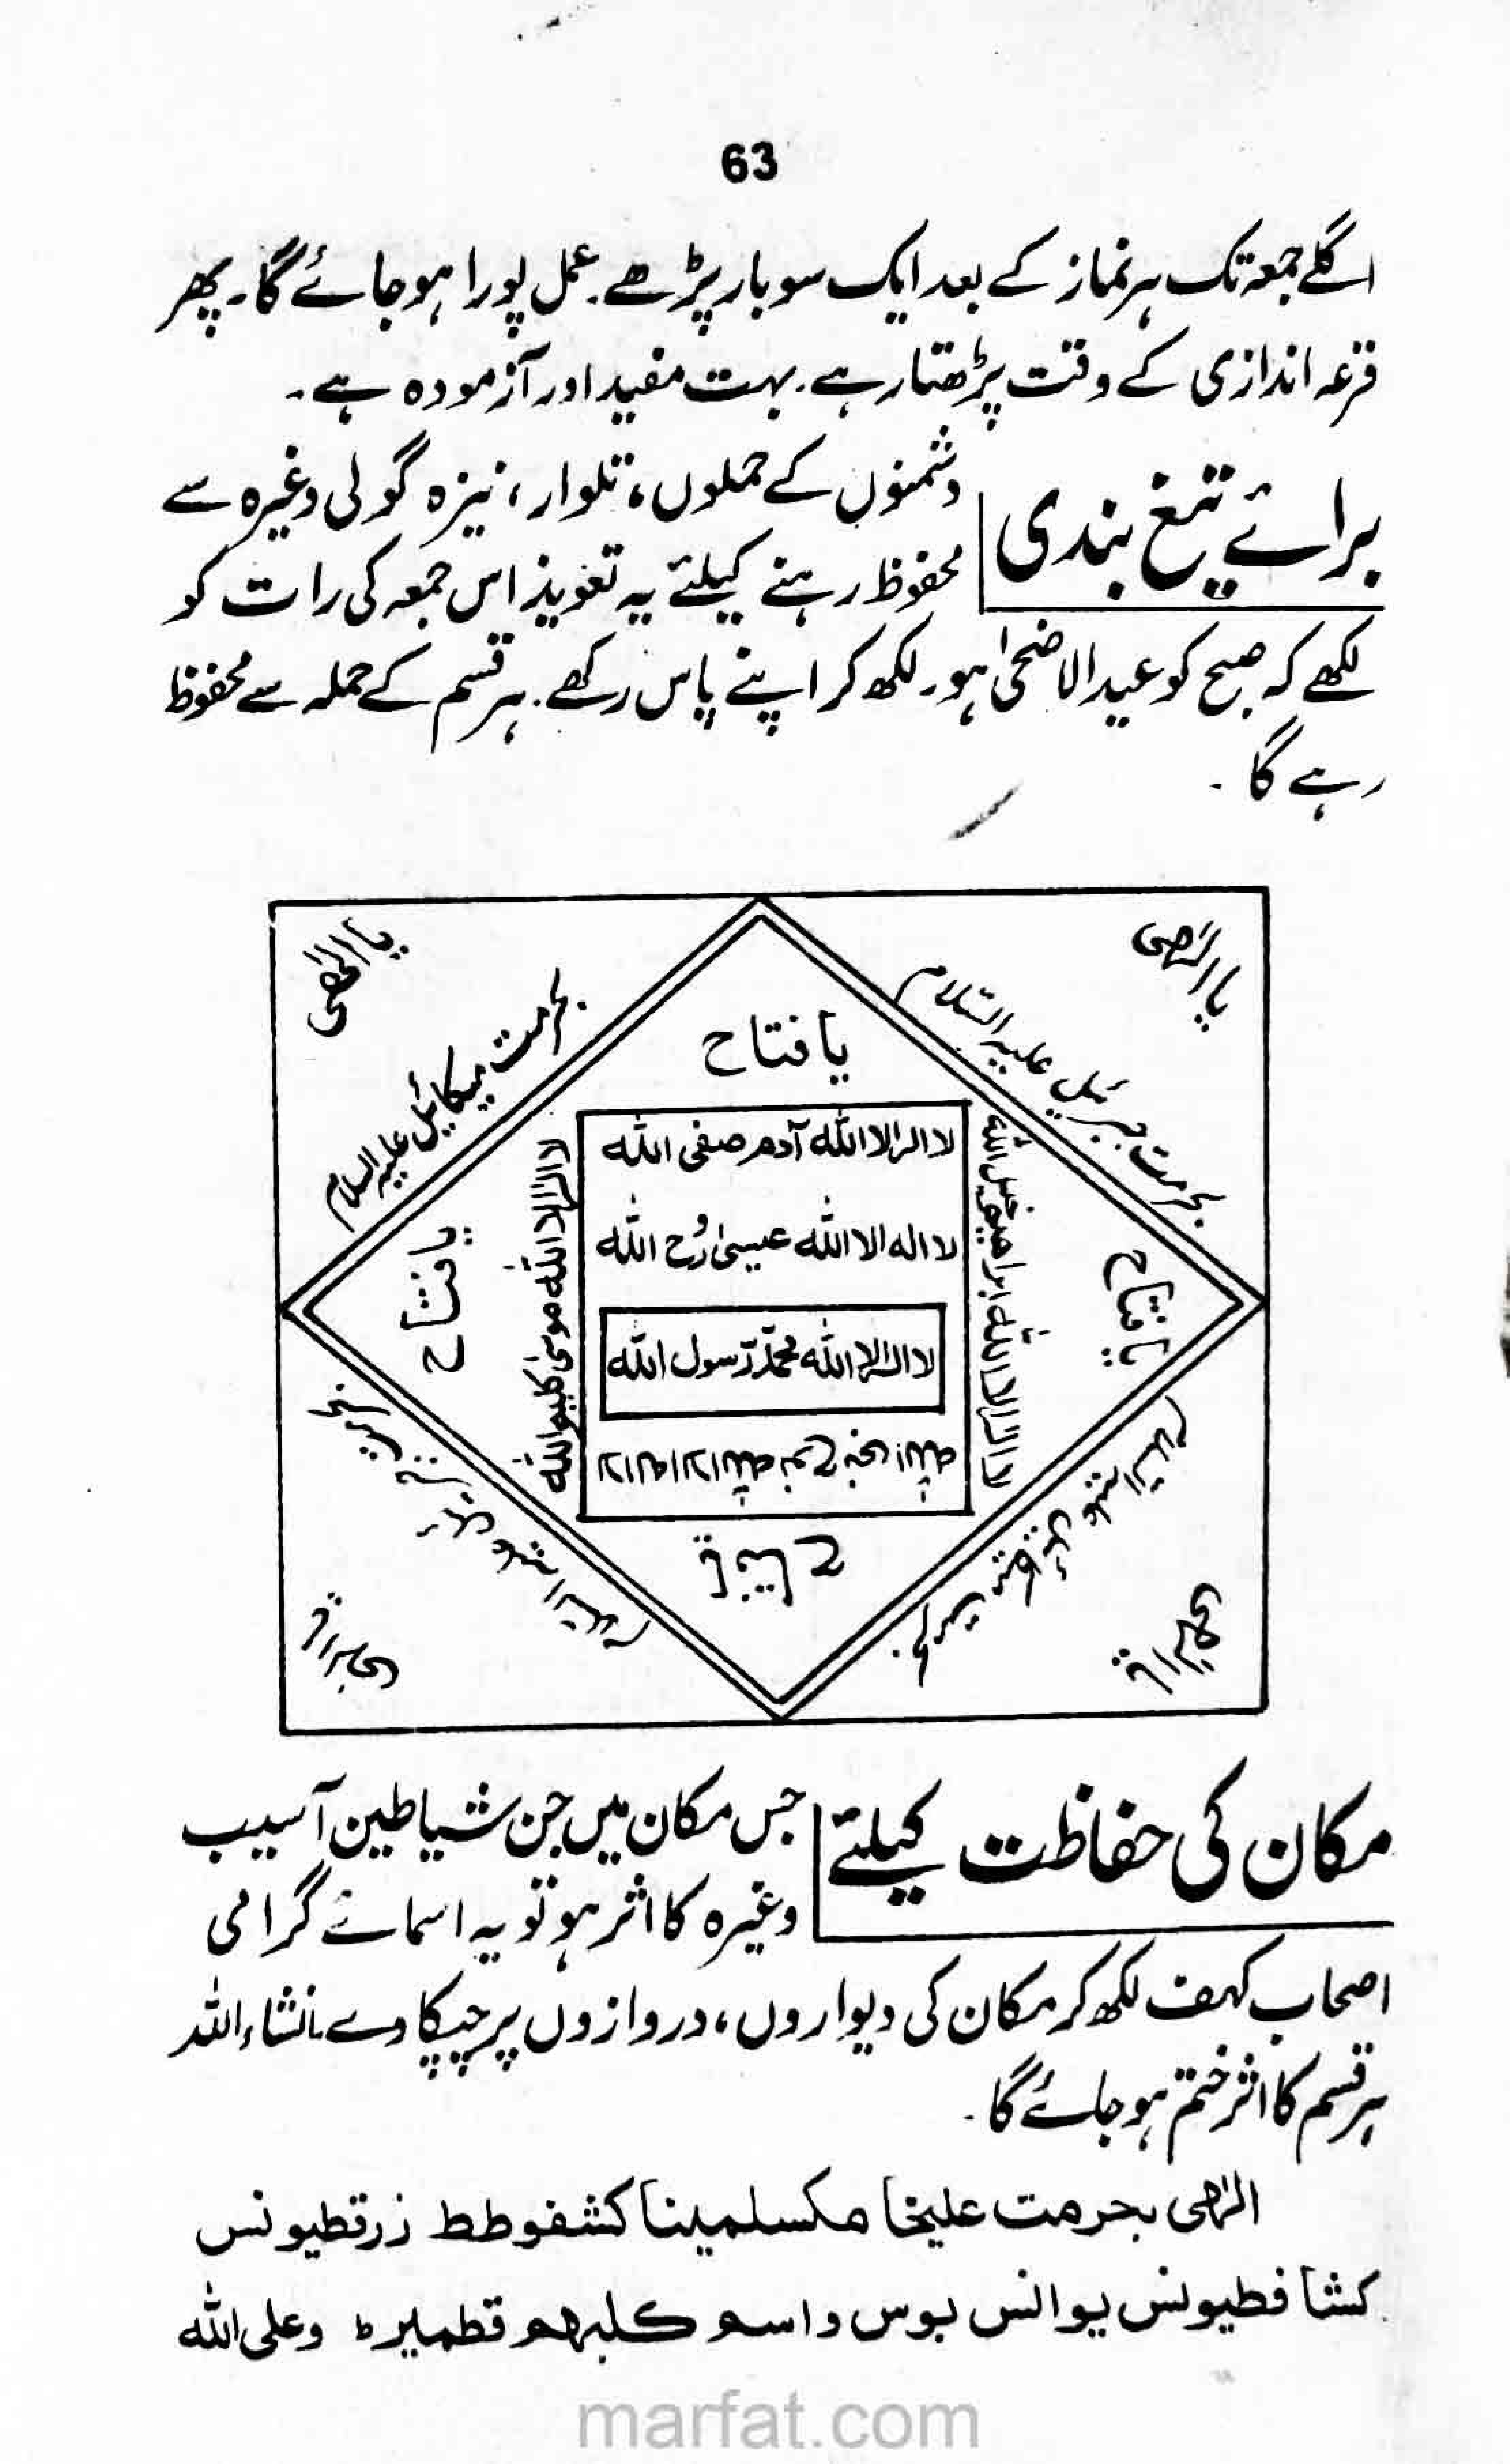 63
اگلے جمعہ تک ہر نماز کے بعد ایک سو بار پڑھے۔ عمل پورا ہو جائے گا۔ پھر
قرعہ اندازی کے وقت پڑھتا رہے۔ بہت مفید اور آزمودہ ہے۔
برائے تیغ بندی
دشمنوں کے حملوں، تلوار، نیزہ گولی وغیرہ سے
محفوظ رہنے کیلئے یہ تعویذ اس جمعہ کی رات کو
لکھے کہ صبح کو عید الاضحیٰ ہو۔ لکھ کر اپنے پاس رکھے۔ ہر قسم کے حملہ سے محفوظ
رہے گا۔
یا الٰھی
یا الٰھی
بحرمت جبرئیل علیہ السّلام
بحرمت میکائیل علیہ السلام
یا فتاح
لا الٰہ الا اللّٰہ آدم صفی اللّٰہ
لا الہ الا اللّٰہ عیسیٰ رُح اللّٰہ
لا الٰہ الا اللّٰہ محمدّ رّسول اللّٰہ
لا الٰہ الا اللّٰہ ابراھیم خلیل اللّٰہ
لا الٰہ الا اللّٰہ موسیٰ کلیم اللّٰہ
یا فتاح
یا فتاح
مکان کی حفاظت کیلئے
جس مکان میں جن شیاطین آسیب
وغیرہ کا اثر ہو تو یہ اسمائے گرامی
اصحاب کہف لکھ کر مکان کی دیواروں، دروازوں پر چپکا دے۔ انشاء اللہ
ہر قسم کا اثر ختم ہو جائے گا۔
الٰھی بحرمت علیخا مکسلمینا کشفوطط زرقطیونس
کشا فطیونس یوانس بوس واسم کلبھم قطمیر ط وعلی اللّٰہ
marfat.com